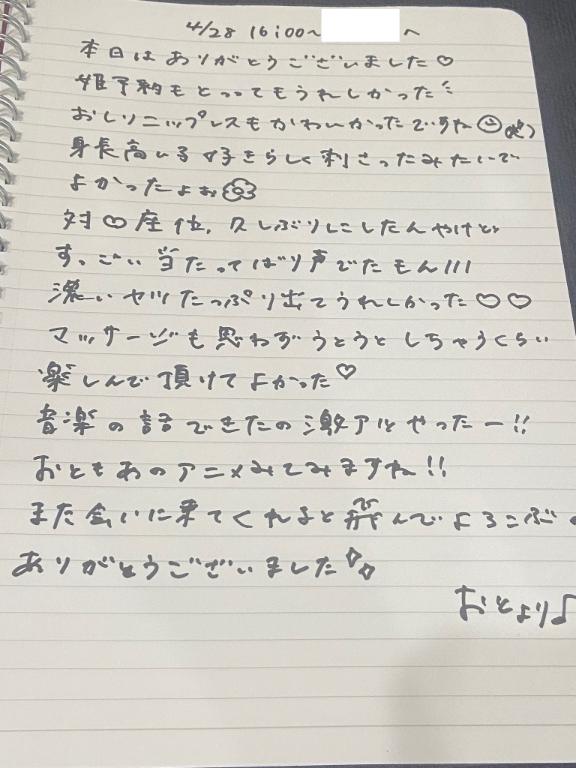 4/28 16:00~ へ
本日はありがとうございました♡
姫予約もとってもうれしかった
おしりニップレスもかわいかったですね
身長高い子好きらしく刺さったみたいで
よかったよぉ
対♡座位、久しぶりにしたんやけど
すっごい当たってばり声でたもん!!!
濃いヤツたっぷり出てうれしかった♡♡
マッサージも思わずうとうとしちゃうくらい
楽しんで頂けてよかった♡
音楽の話できたの激アツやったー!!
おともあのアニメみてみますね!!
また会いに来てくれると飛んでよろこぶ
ありがとうございました
おとより♪